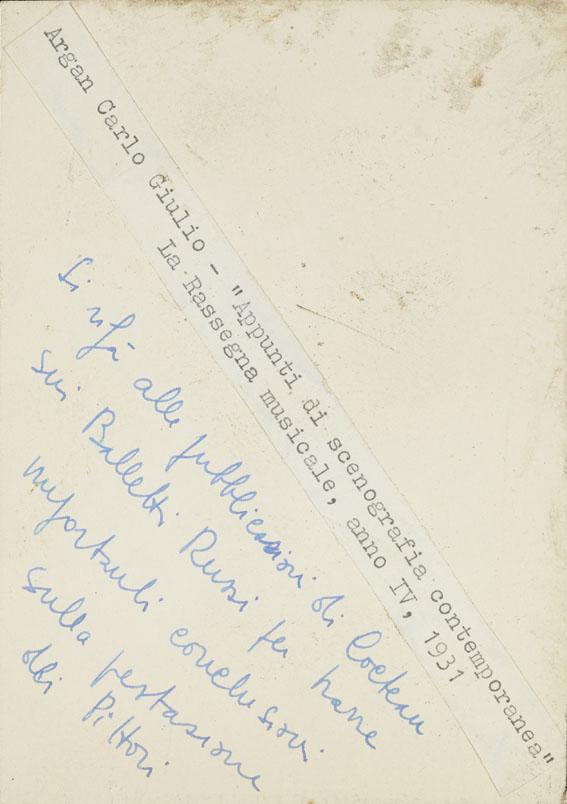 Argan Carlo Giulio - "Appunti di scenografia contemporanea"
La Rassegna musicale, anno IV, 1931
Si rifà alle pubblicazioni di Cocteau
sui Balletti Russi per trarre
importanti conclusioni
sulla prestazione
dei Pittori